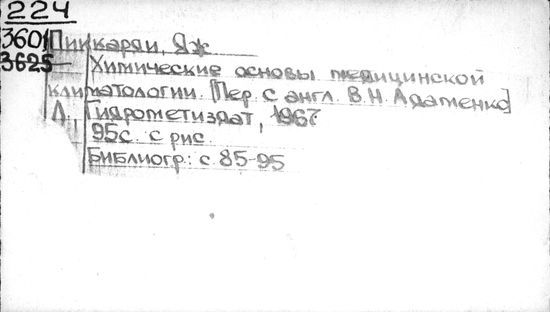 224
3601 Пиккарди, Дж
3625 Химические основы медицинской
климатологии. [Пер. с англ. В.Н. Адаменко]
Л., Гидрометиздат, 1967
95с. с рис.
Библиогр: с. 85-95